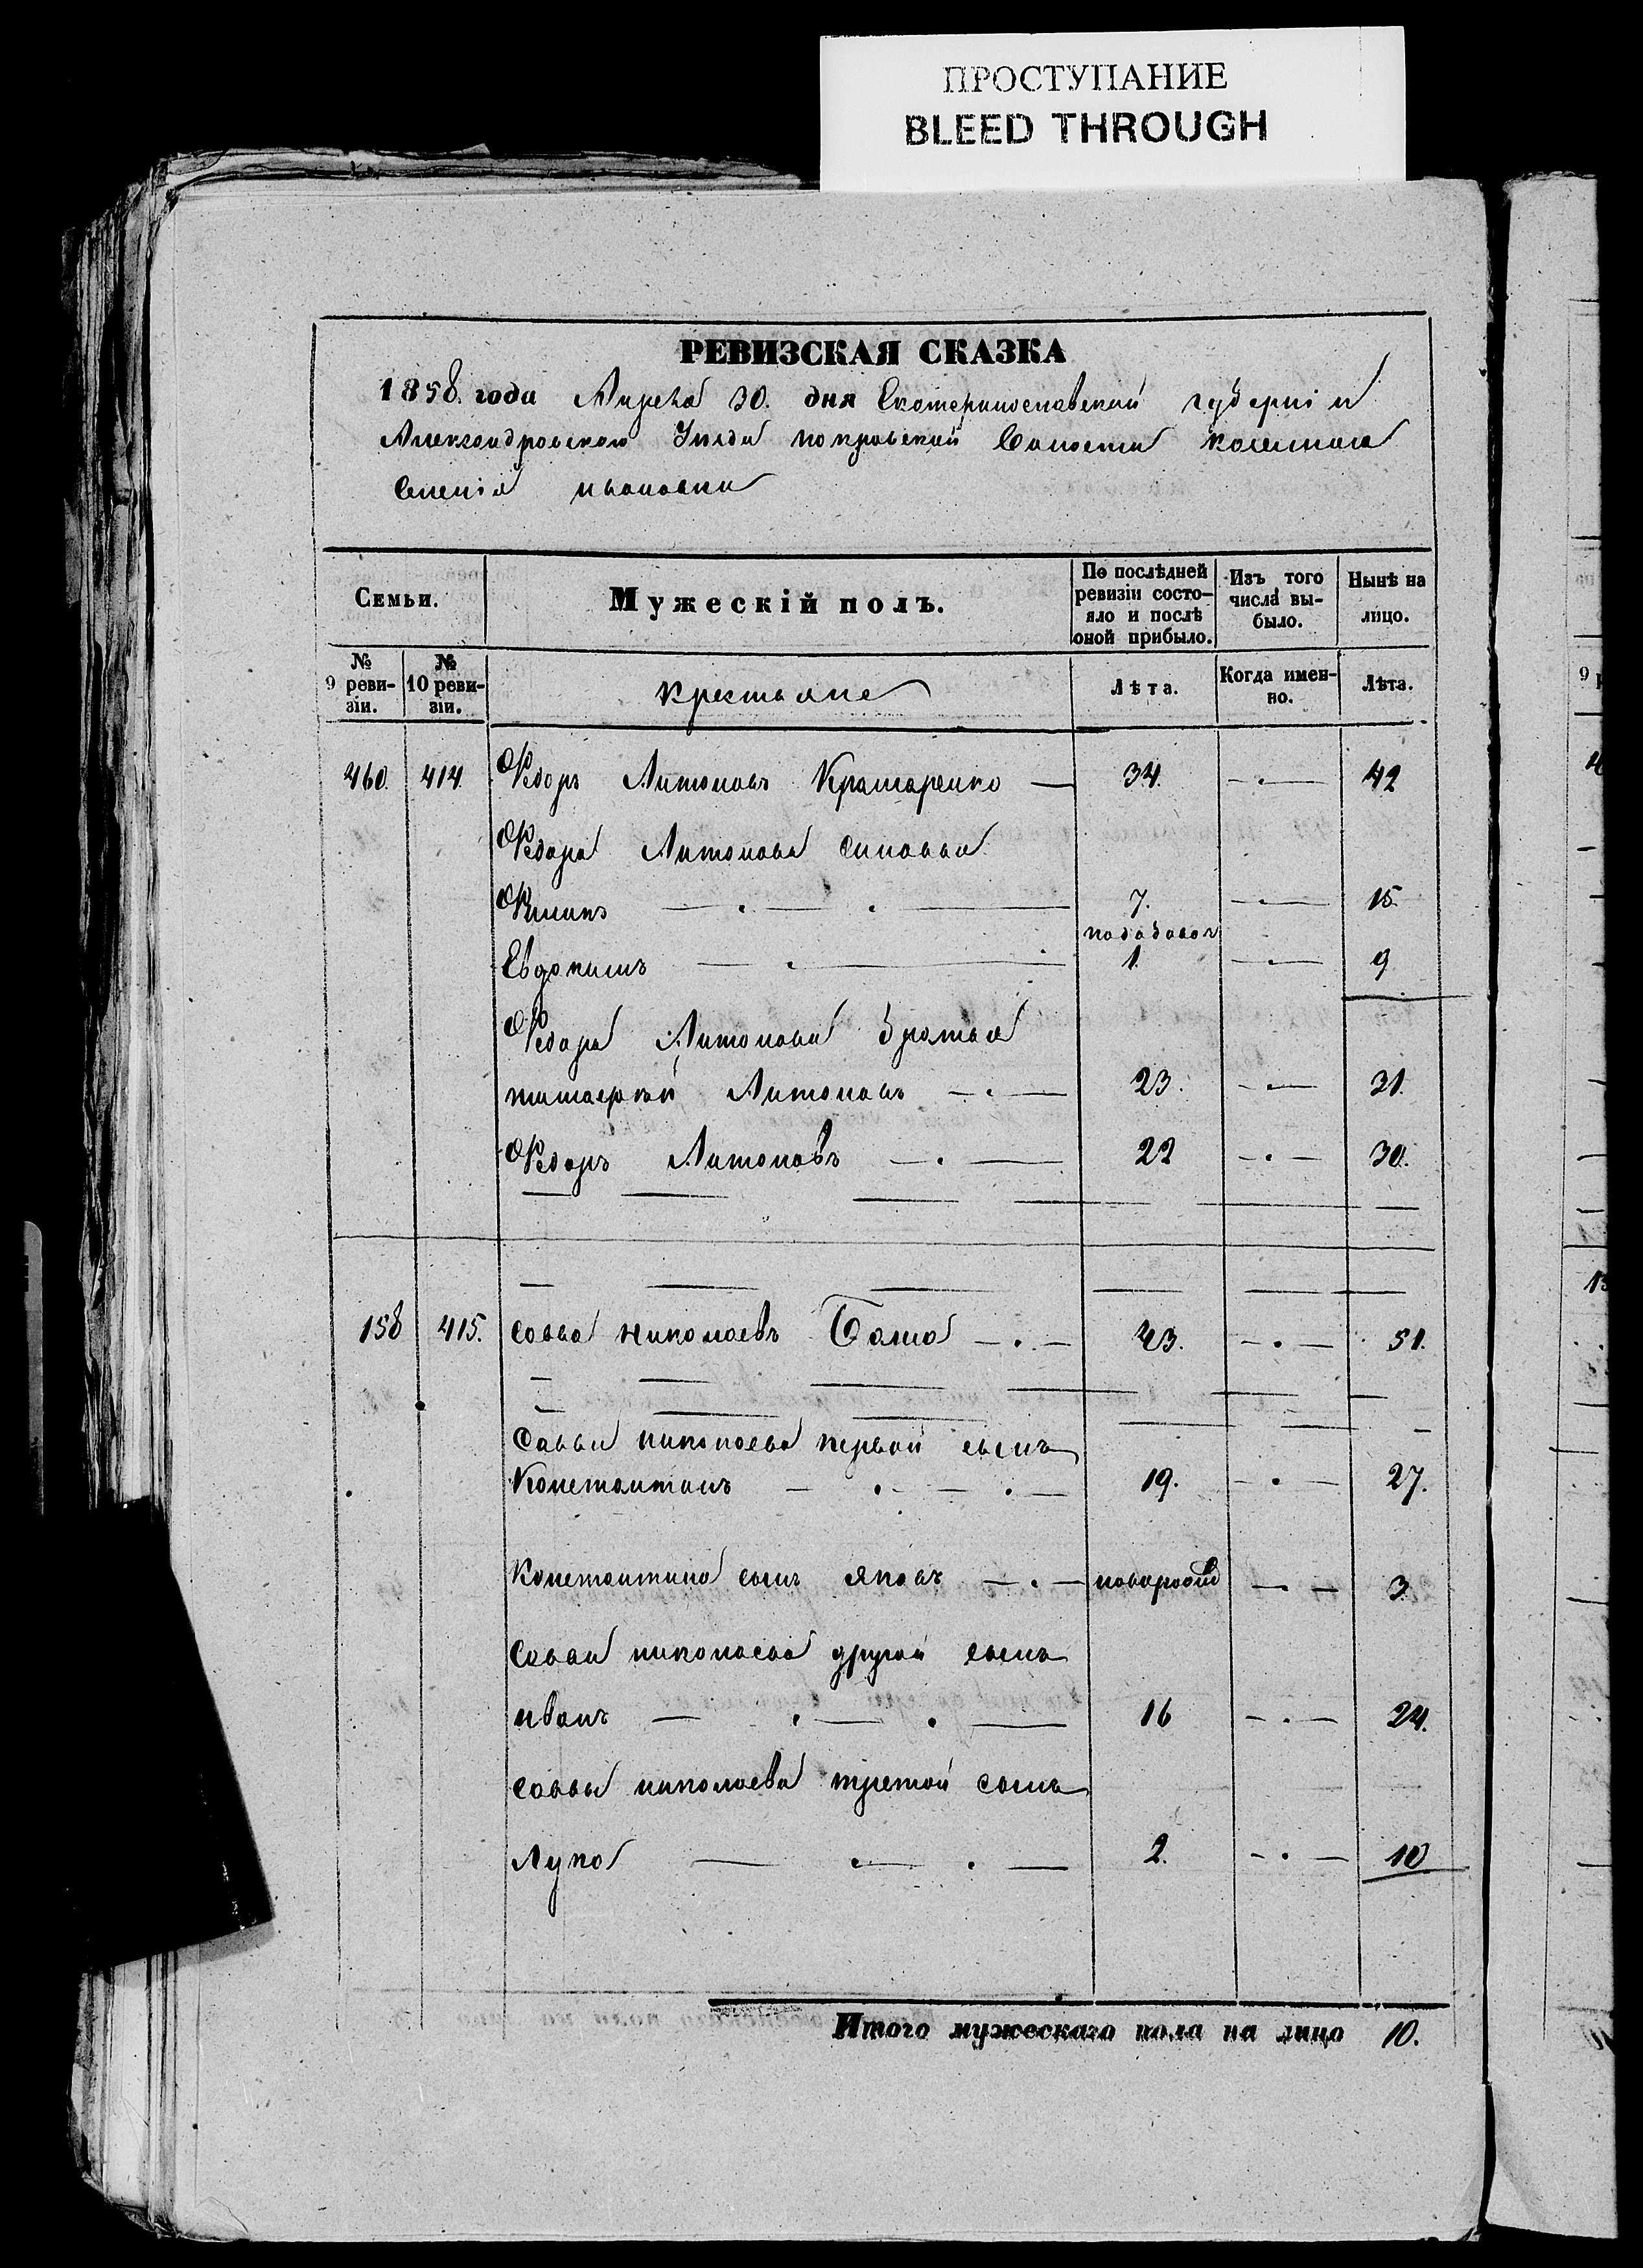 ПРОСТУПАНИЕ
BLEED THROUGH
РЕВИЗСКАЯ СКАЗКА
1858. года Апреля 30. дня Екатеринославской губерніи
Александровскаго Уезда покровской Волости
Селенія
Семьи.
Мужескій полъ.
По послѣдней ревизіи состо-
яло и послѣ
оной прибыло.
Изъ того
числа вы-
было.
Нынѣ на
лицо.
№
9 реви-
зіи.
№
10 реви-
зіи.
крестьяне
Лѣта.
Когда имен-
но.
Лѣта.
460. 414 Федоръ Антоновъ Крамаренко 34. 42
Федора Антонова синовья
7. 15.
Евдокимъ 1. 9
Федора Антонова братья
Антоновъ 23. 31.
Федоръ Антоновъ 22 30.
158 415. Савва николаевъ 43. 51.
Саввы николаева первой сынъ
Константинъ 19. 27.
Константина сынъ яковъ 3.
Саввы николаева другой сынъ
иванъ 16 24.
саввы николаева третой сынъ
Лука 2. 10
Итого мужескаго пола на лицо 10.
9